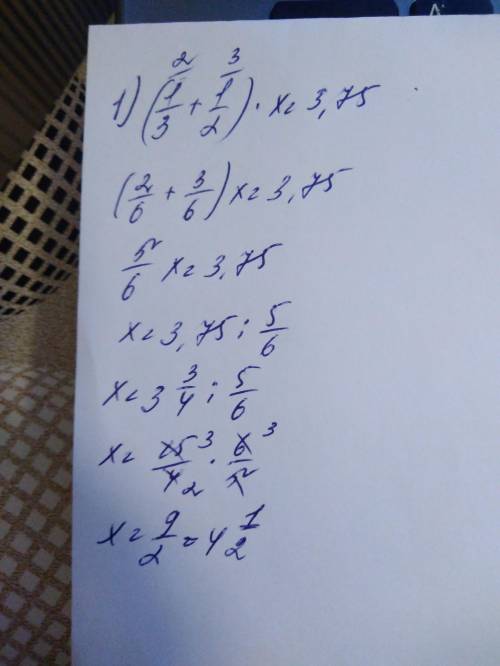 1) (1/3 + 1/2) · x = 3,75
2 3
(2/6 + 3/6) x = 3,75
5/6 x = 3,75
x = 3,75 : 5/6
x = 3 3/4 : 5/6
x = 15/4 · 6/5
3 2 3
x = 9/2 = 4 1/2
A